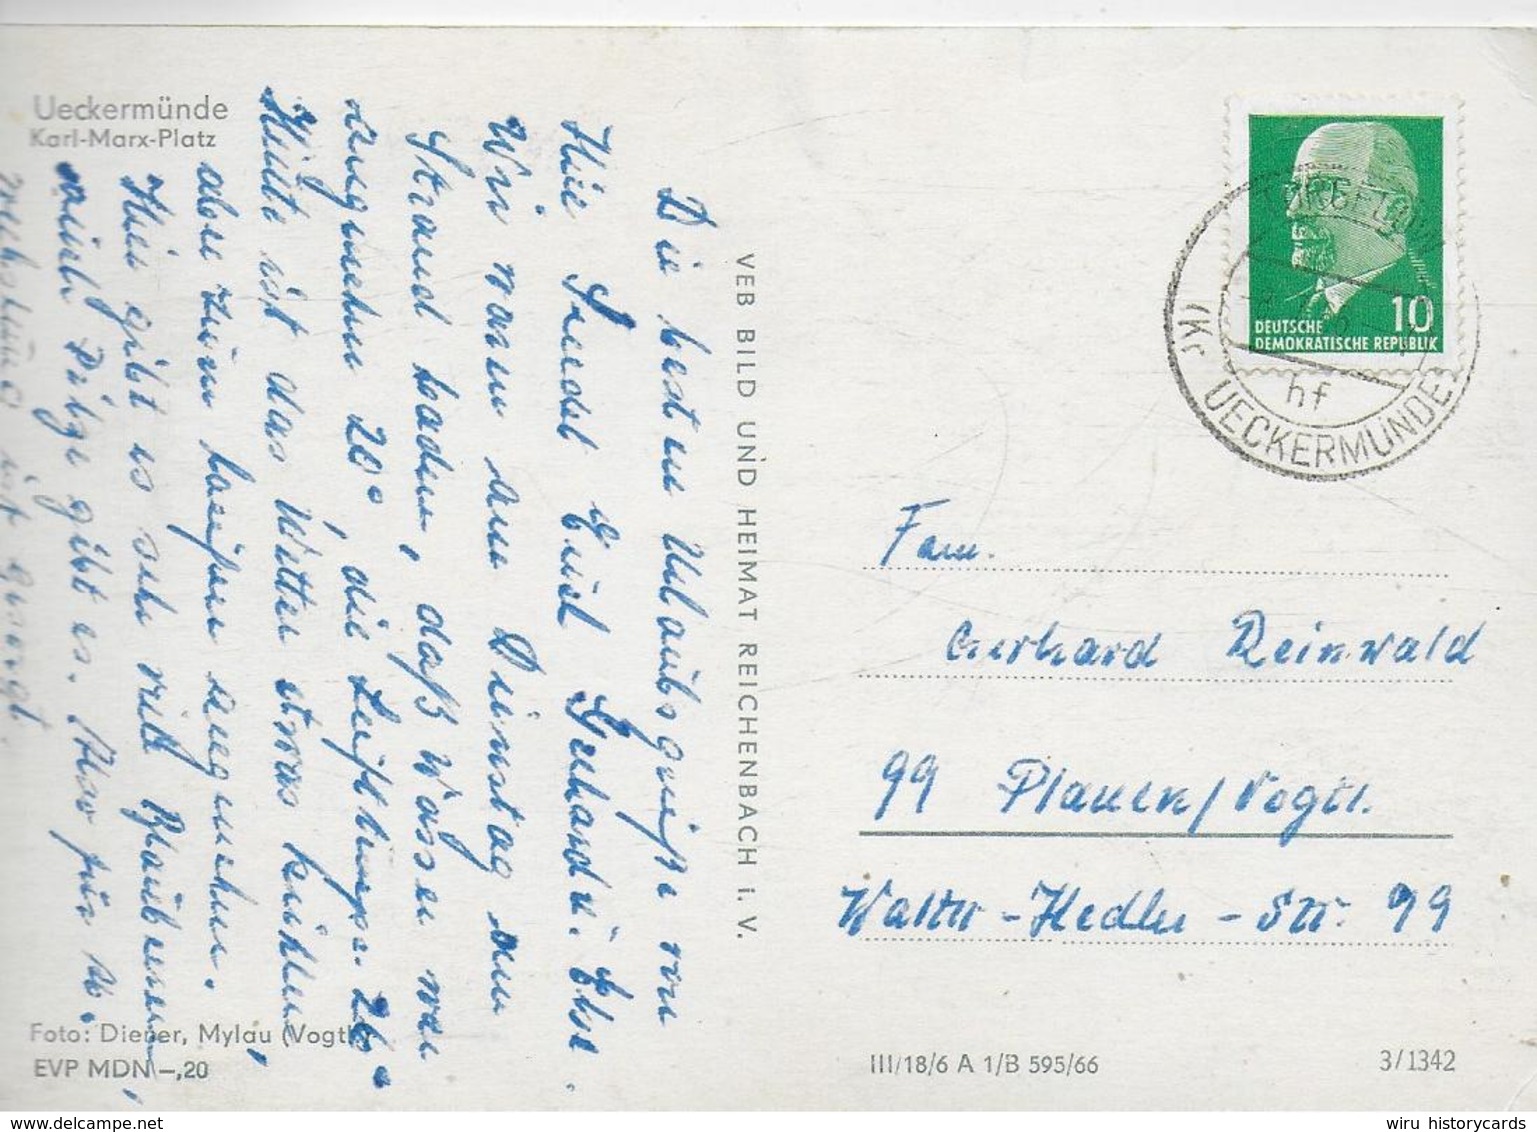 Ueckermünde
Karl-Marx-Platz
Die besten Urlaubsgrüße von
Hier Friedel Gerhard u. Else.
Wir waren am Dienstag am
Strand baden, das Wasser war
angenehm 20°, die Luft 26°
Heute ist das Wetter etwas kühler,
aber zum laufen angenehm.
Hier gibt es sehr viel Blaubeeren,
viele Pilze gibt es. Also für
ist gesorgt.
Foto: Diener, Mylau (Vogtl.)
EVP MDN –,20
VEB BILD UND HEIMAT REICHENBACH i. V.
DEUTSCHE
DEMOKRATISCHE REPUBLIK
10
TORGELOW
hf
(Kr UECKERMÜNDE)
Fam.
Gerhard Reinwald
99 Plauen/Vogtl.
Walter-Hedler-Str. 99
III/18/6 A 1/B 595/66
3/1342
wiru historycards